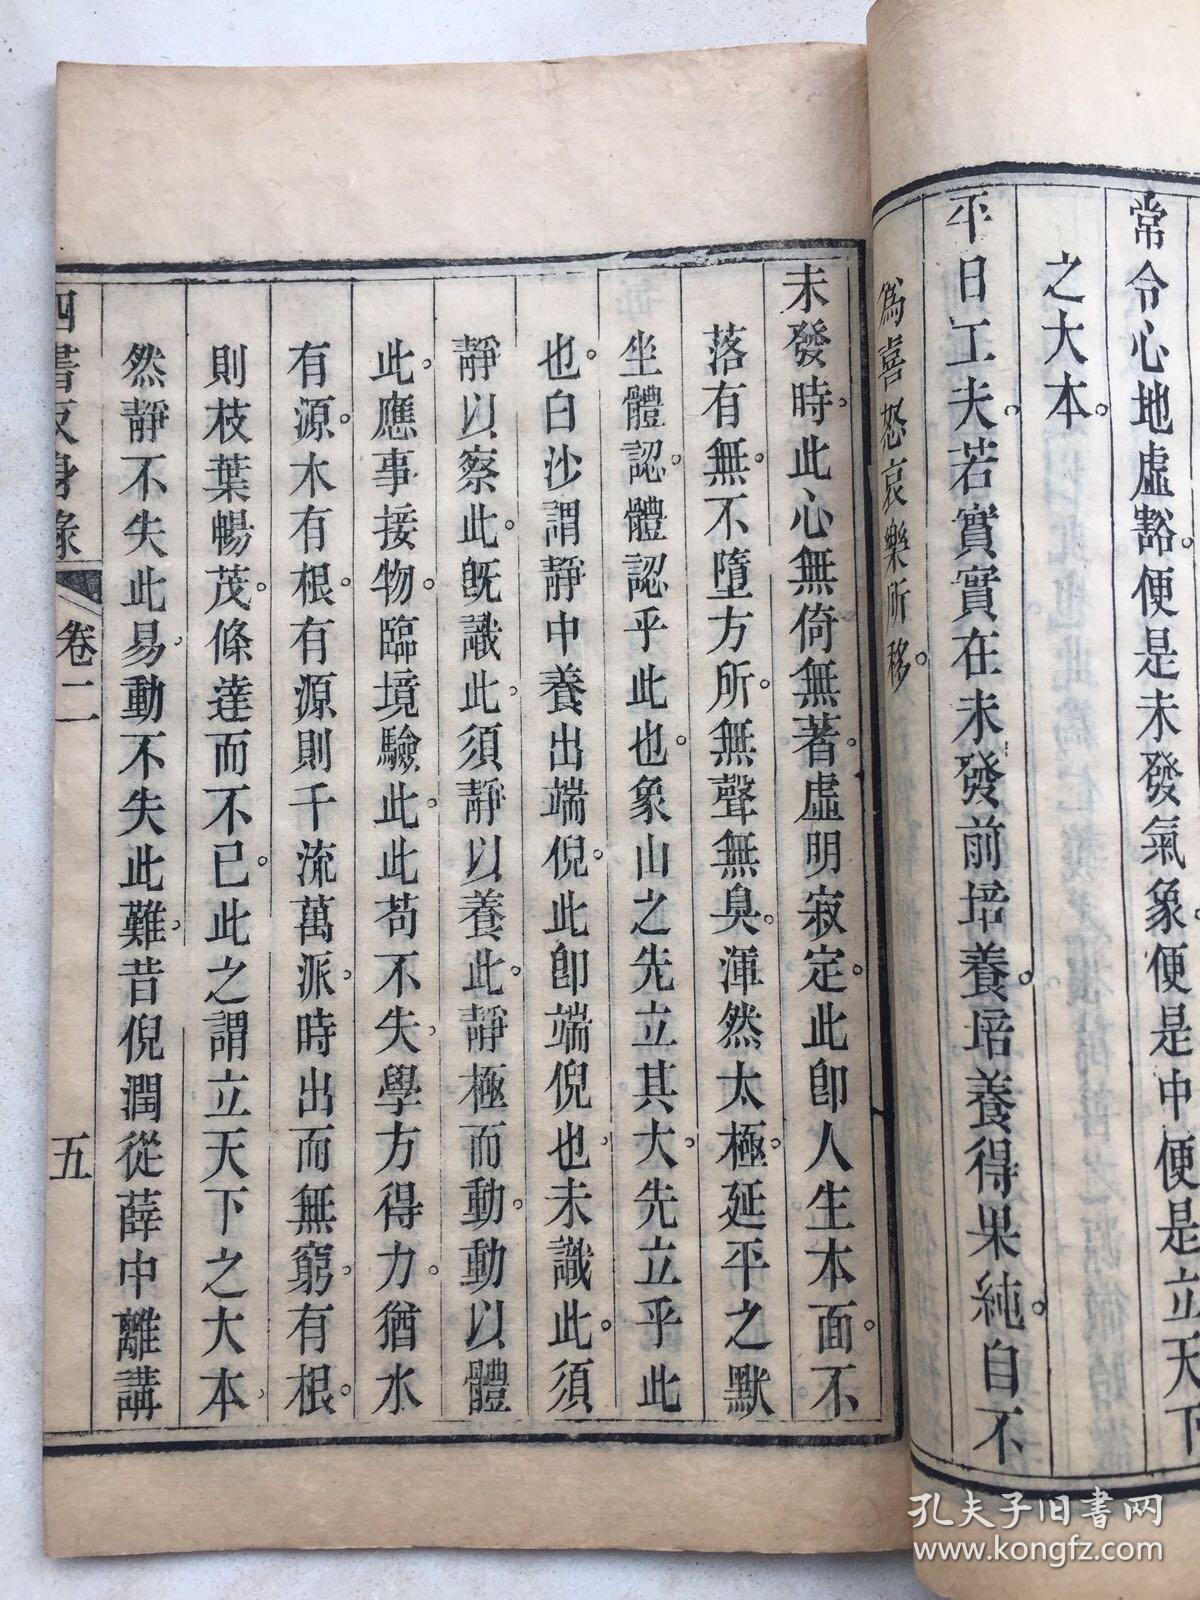 常令心地虛豁。便是未發氣象。便是中便是立天下
之大本。
平日工夫。若實實在未發前培養。培養得果純。自不
為喜怒哀樂所移。
未發時。此心無倚無著。虛明寂定。此卽人生本面。不
落有無。不墮方所。無聲無臭。渾然太極。延平之默
坐體認。體認乎此也。象山之先立其大。先立乎此
也。白沙謂靜中養出端倪。此卽端倪也。未識此。須
靜以察此。旣識此。須靜以養此。靜極而動。動以體
此。應事接物。臨境驗此。此苟不失。學方得力。猶水
有源。木有根。有源則千流萬派。時出而無窮。有根。
則枝葉暢茂。條達而不已。此之謂立天下之大本。
然靜不失此易。動不失此難。昔倪潤從薛中離講
四書反身錄 卷二 五
孔夫子旧书网
www.kongfz.com